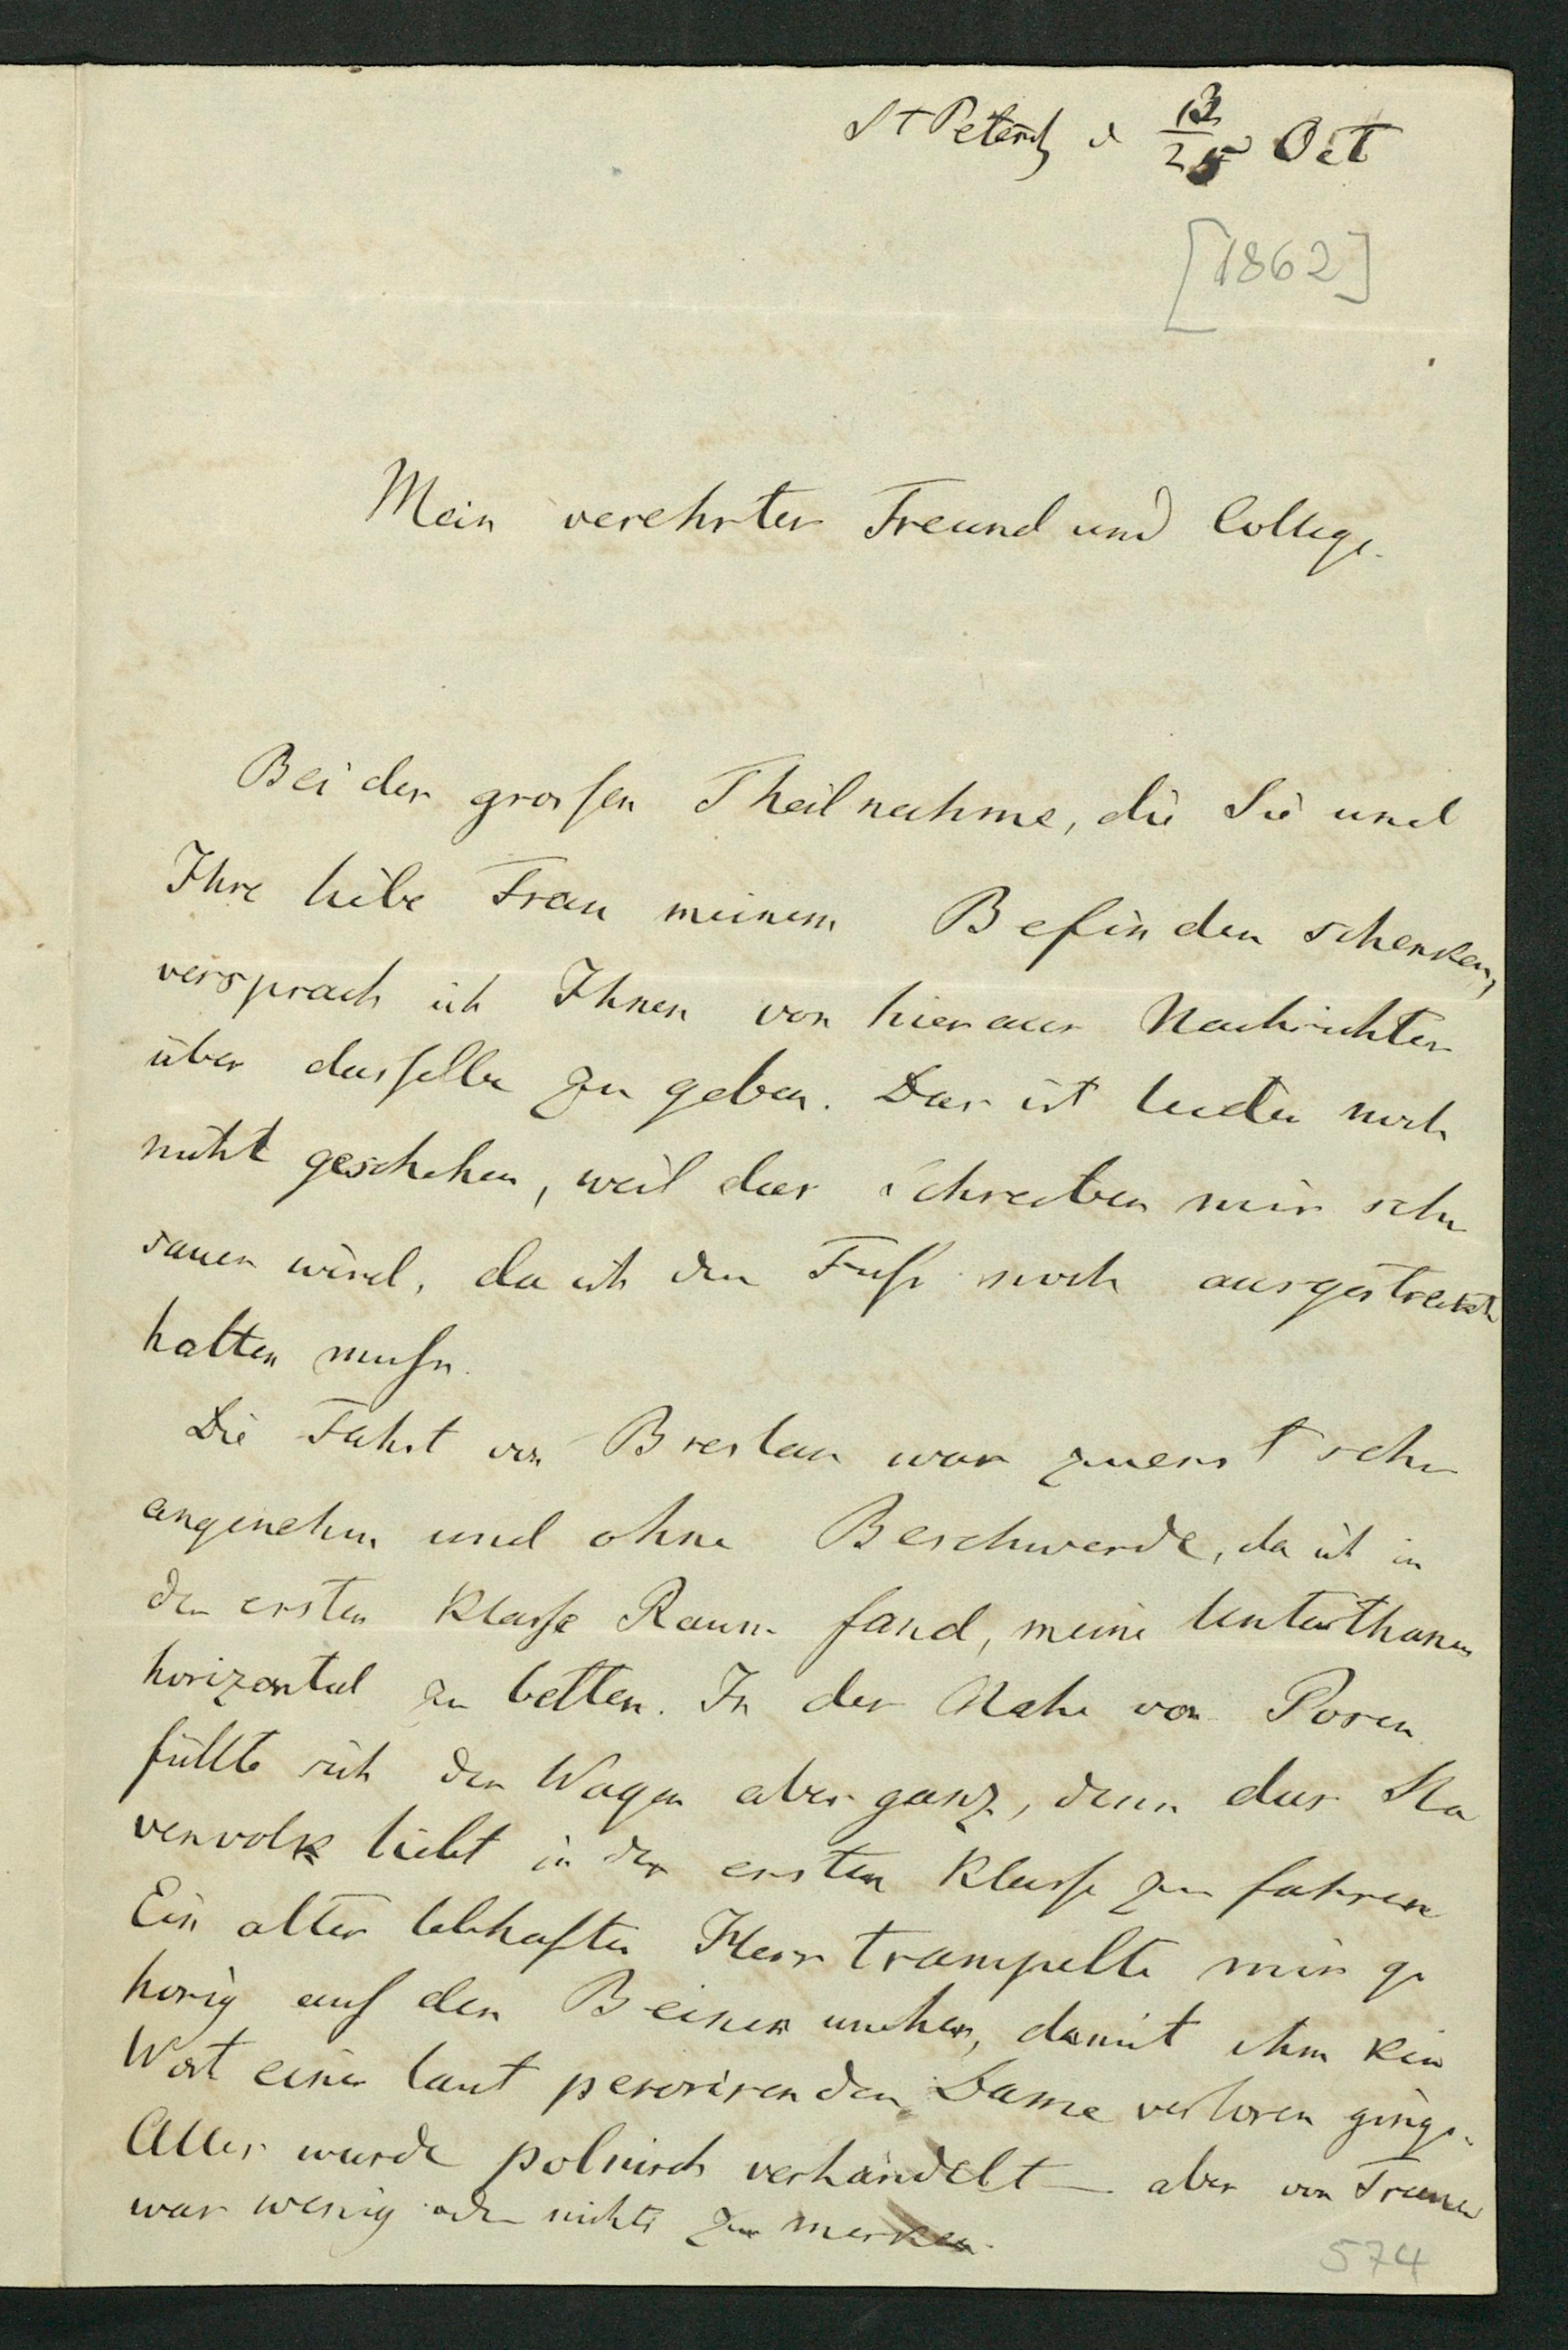 St Petersb d 13/25 Oct
[1862]
Mein verehrter Freund und College.
Bei der grossen Theilnahme, die Sie und
Ihre liebe Frau meinem Befinden schenken,
versprach ich Ihnen von hier aus Nachrichten
über dasselbe zu geben. Das ist leider noch
nicht geschehen, weil das Schreiben mir sehr
sauer wird, da ich den Fuss noch ausgestreckt
halten muss.
Die Fahrt von Breslau war zuerst sehr
angenehm und ohne Beschwerde, da ich in
der ersten Klasse Raum fand, meine Unterthanen
horizontal zu betten. In der Nähe von Posen
füllte sich der Wagen aber ganz, denn das Sla
venvolk liebt in der ersten Klasse zu fahren
Ein alter lebhafter Herr trampelte mir ge
hörig auf den Beinen umher, damit ihm kein
Wort einer laut perorirenden Dame verloren ginge.
Alles wurde polnisch verhandelt – aber von Trauer
war wenig oder nichts zu merken.
574